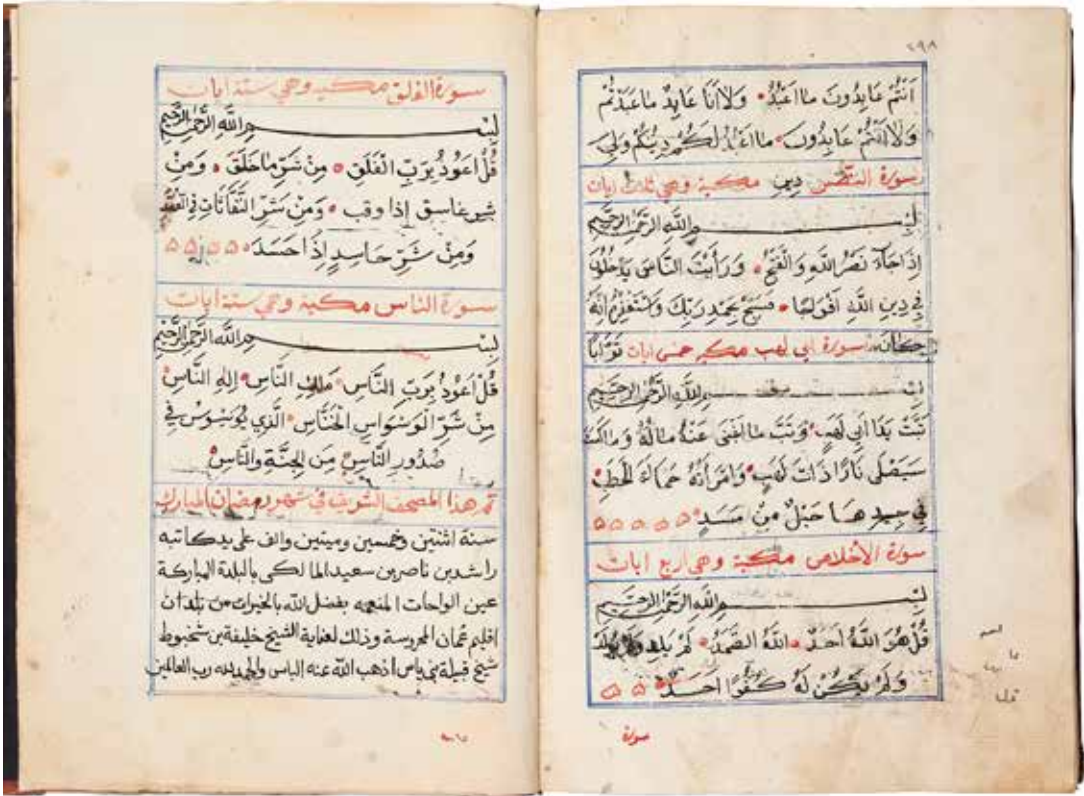 ٢٩٨
اَنْتُمْ عَابِدُونَ مَا اَعْبُدُ وَلَا اَنَا عَابِدٌ مَا عَبَدْتُمْ
وَلَا اَنْتُمْ عَابِدُونَ مَا اَعْبُدُ لَكُمْ دِينُكُمْ وَلِيَ
سورة النصر دِينِ مكية وهي ثلاث ايات
بِسْمِ اللَّهِ الرَّحْمَنِ الرَّحِيمِ
اِذَا جَآءَ نَصْرُ اللَّهِ وَالْفَتْحُ وَرَأَيْتَ النَّاسَ يَدْخُلُونَ
فِي دِينِ اللَّهِ اَفْوَاجًا فَسَبِّحْ بِحَمْدِ رَبِّكَ وَاسْتَغْفِرْهُ اِنَّهُ
كَانَ سورة ابي لهب مكيه خمس ايات تَوَّابًا
بِسْمِ اللَّهِ الرَّحْمَنِ الرَّحِيمِ
تَبَّتْ يَدَا اَبِي لَهَبٍ وَتَبَّ مَا اَغْنَى عَنْهُ مَالُهُ وَمَا كَسَبَ
سَيَصْلَى نَارًا ذَاتَ لَهَبٍ وَامْرَاَتُهُ حَمَّالَةَ الْحَطَبِ
فِي جِيدِهَا حَبْلٌ مِنْ مَسَدٍ ۵ ۵ ۵ ۵ ۵
سورة الاخلاص مكية وهي اربع ايات
بِسْمِ اللَّهِ الرَّحْمَنِ الرَّحِيمِ
قُلْ هُوَ اللَّهُ اَحَدٌ اَللَّهُ الصَّمَدُ لَمْ يَلِدْ وَلَمْ يُولَدْ
وَلَمْ يَكُنْ لَهُ كُفُوًا اَحَدٌ ۵ ۵
سورة
سورة الفلق مكيه وهي ستة ايات
بِسْمِ اللَّهِ الرَّحْمَنِ الرَّحِيمِ
قُلْ اَعُوذُ بِرَبِّ الْفَلَقِ مِنْ شَرِّ مَا خَلَقَ وَمِنْ
شر غاسق إذا وقب وَمِنْ شَرِّ النَّفَّاثَاتِ فِي الْعُقَدِ
وَمِنْ شَرِّ حَاسِدٍ اِذَا حَسَدَ ۵ ۵ ۵ ۵
سورة الناس مكية وهي ستة ايات
بِسْمِ اللَّهِ الرَّحْمَنِ الرَّحِيمِ
قُلْ اَعُوذُ بِرَبِّ النَّاسِ مَلِكِ النَّاسِ اِلَهِ النَّاسِ
مِنْ شَرِّ الْوَسْوَاسِ الْخَنَّاسِ الَّذِي يُوَسْوِسُ فِي
صُدُورِ النَّاسِ مِنَ الْجِنَّةِ وَالنَّاسِ
تم هذا المصحف الشريف في شهر رمضان المبارك
سنة اثنتين وخمسين وميتين والف على يد كاتبه
راشد بن ناصر بن سعيد المالكي بالبلدة المباركة
عين الواحات المنعمه بفضل الله بالخيرات من بلدان
اقليم عمان المحروسة وذلك لعناية الشيخ خليفة بن شخبوط
شيخ قبيلة بني ياس اذهب الله عنه الباس والحمد لله رب العالمين